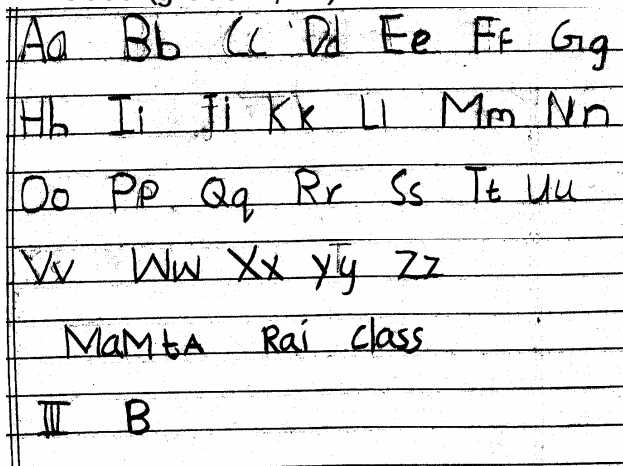 Aa Bb Cc Dd Ee Ff Gg
Hh Ii Jj Kk Ll Mm Nn
Oo Pp Qq Rr Ss Tt Uu
Vv Ww Xx Yy Zz
MaMtA Rai Class
III B